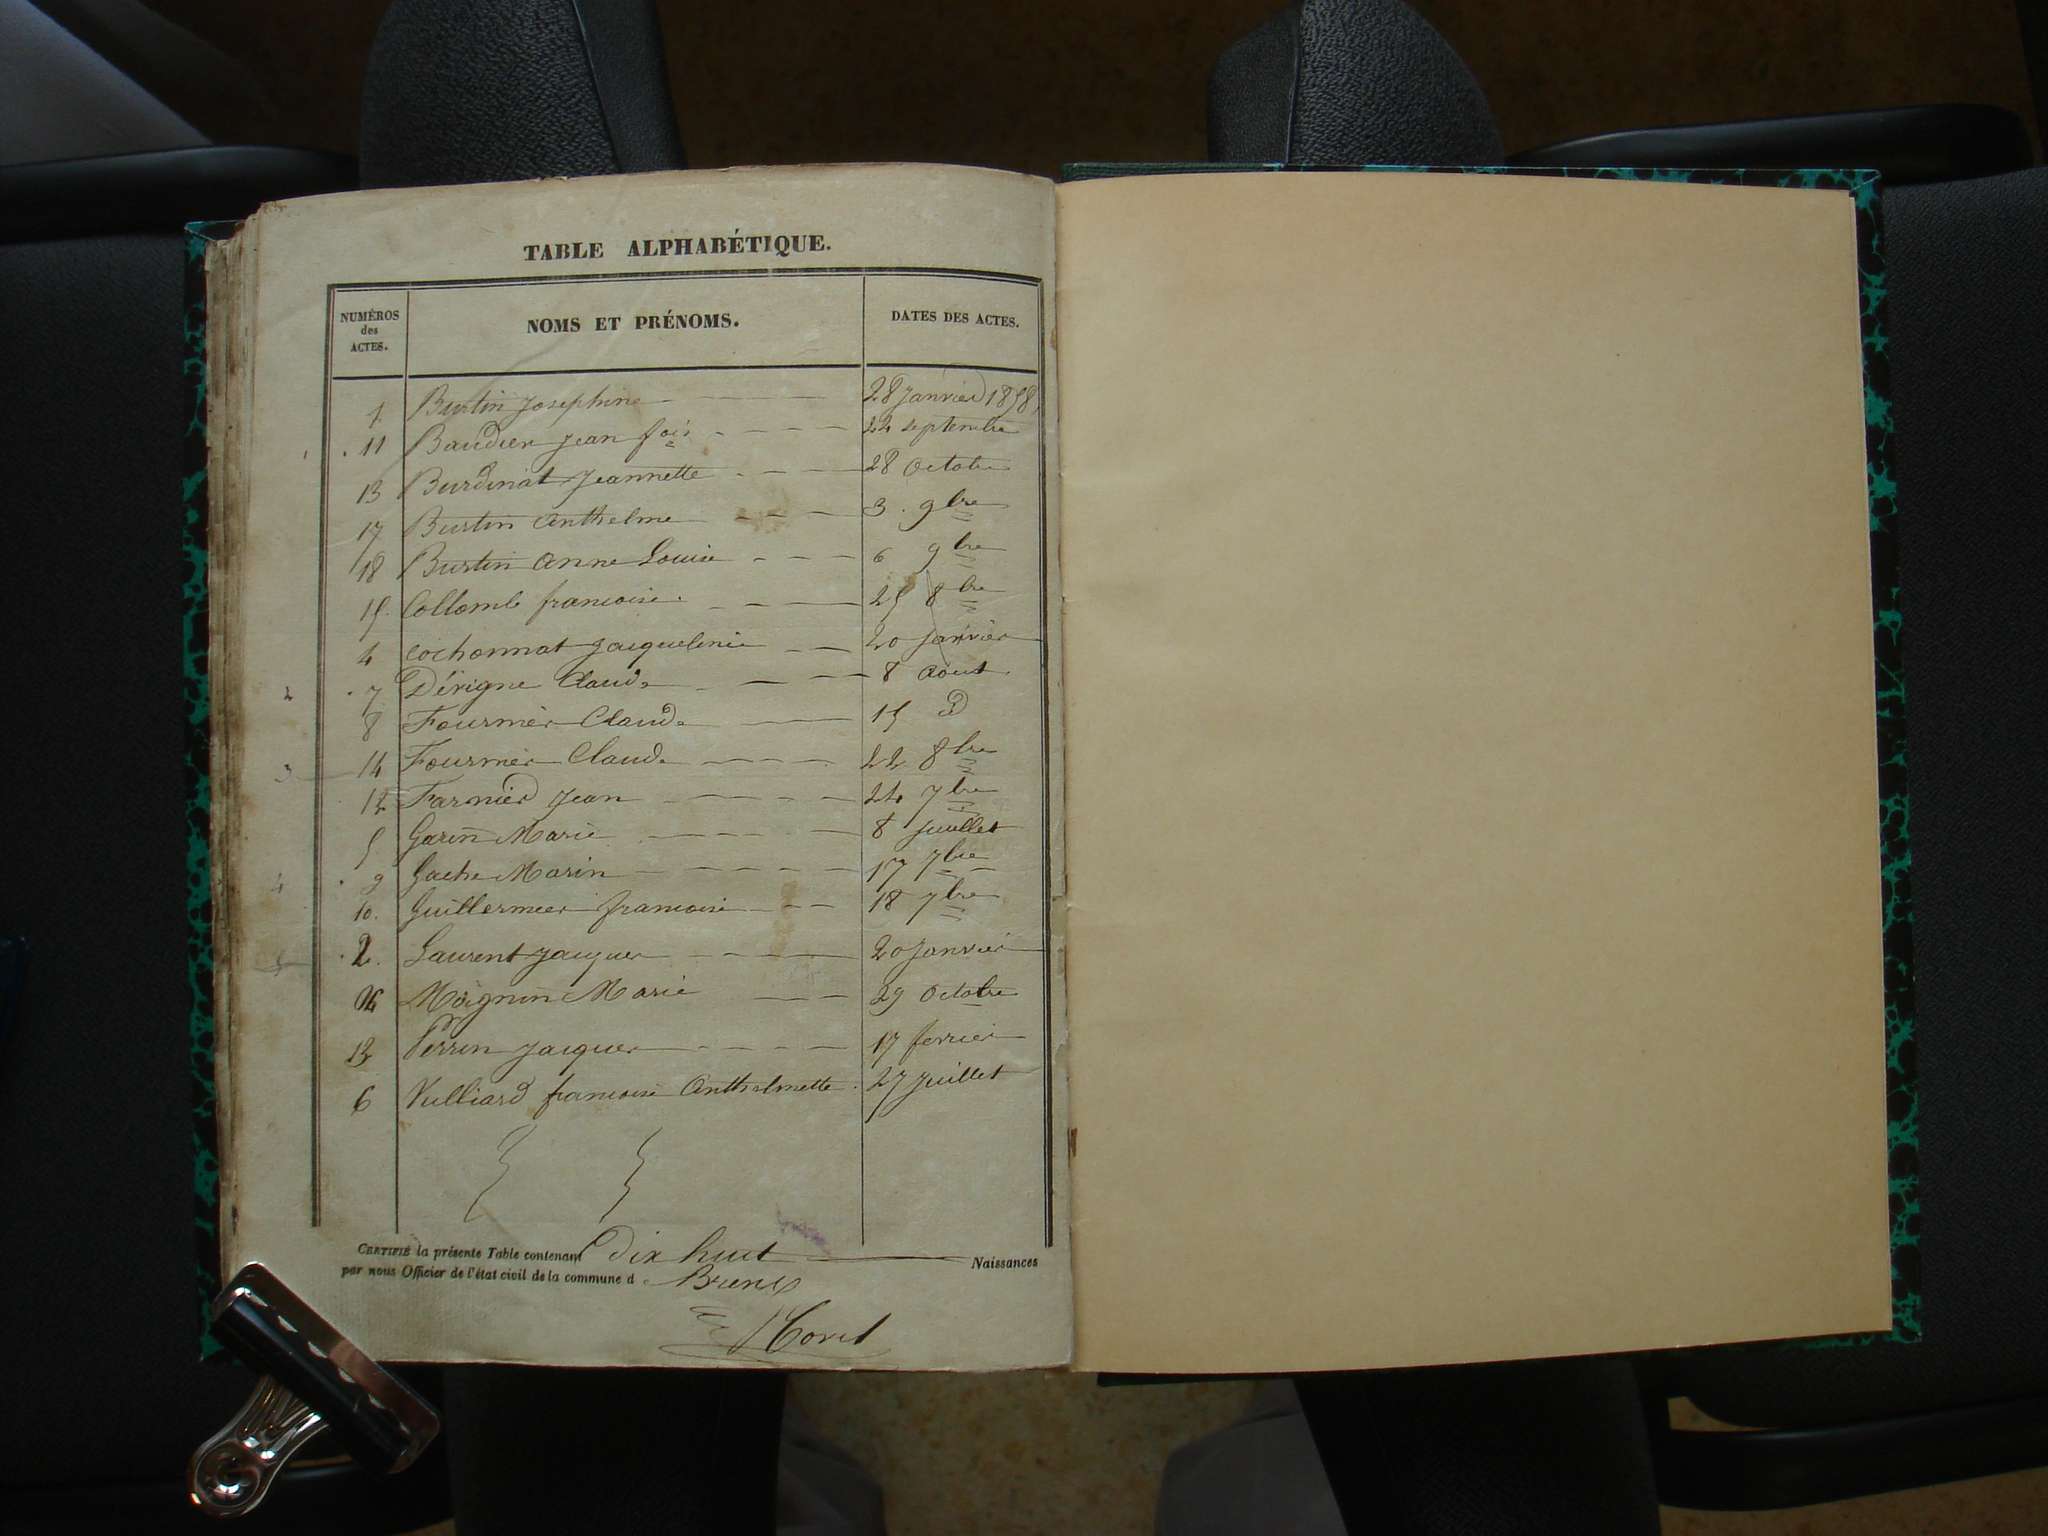 TABLE ALPHABÉTIQUE.
NUMÉROS des ACTES. NOMS ET PRÉNOMS. DATES DES ACTES.
1 Burtin Josephine 28 Janvier 1858
11 Baudier Jean fois 22 septembre
13 Burdinat Jeannette 28 Octobre
17 Burtin Anthelme 3. 9bre
18 Burtin Anne Louise 6 9bre
15. Collomb francoise 25 8bre
4 Cochonnat Jacqueline 20 Janvier
2 7 Dérigne Claude 8 Aout
8 Fournier Claude 15 d
3 14 Fournier Claude 22 8bre
12 Farnier Jean 24 7bre
5 Garin Marie 8 Juillet
4 9 Gache Marin 17 7bre
10. Guillermier francoise 18 7bre
5 2. Laurent Jacques 20 Janvier
16 Moignin Marie 29 Octobre
Perrin Jacques 17 fevrier
6 Vulliard francoise Anthelmette 27 Juillet
CERTIFIÉ la présente Table contenant dix huit Naissances
par nous Officier de l'état civil de la commune d e Brens